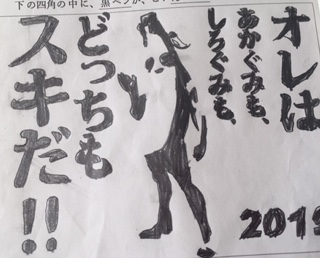 下の四角の中に、黒ペンか、
オレは
あかぐみも、
しろぐみも、
どっちも
スキだ!!
2019